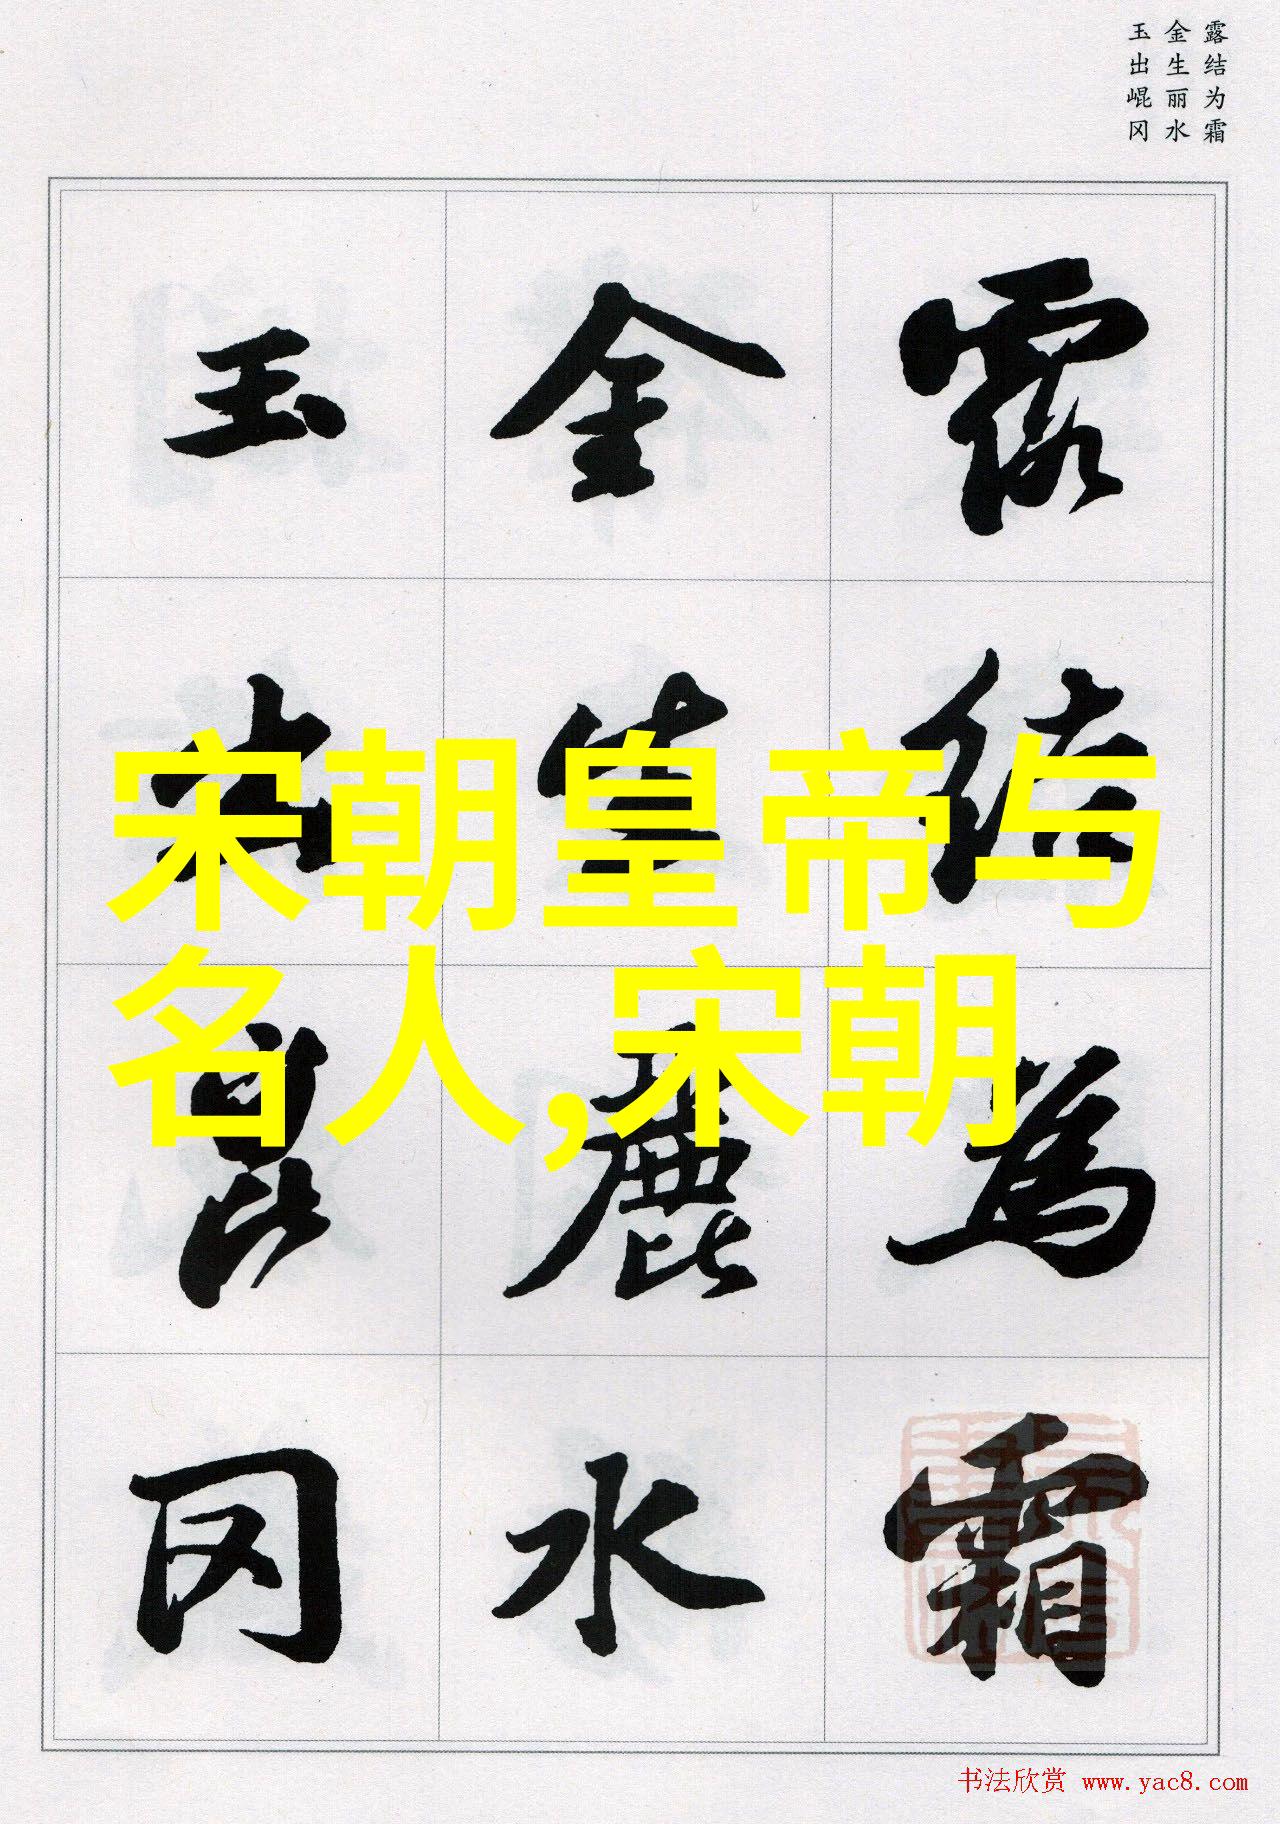 露结为霜
金生丽水
玉出崐冈
露结為霜
金生麗水
玉出崑冈
宋朝皇帝与
名人,宋朝
书法欣赏 www.yac8.com